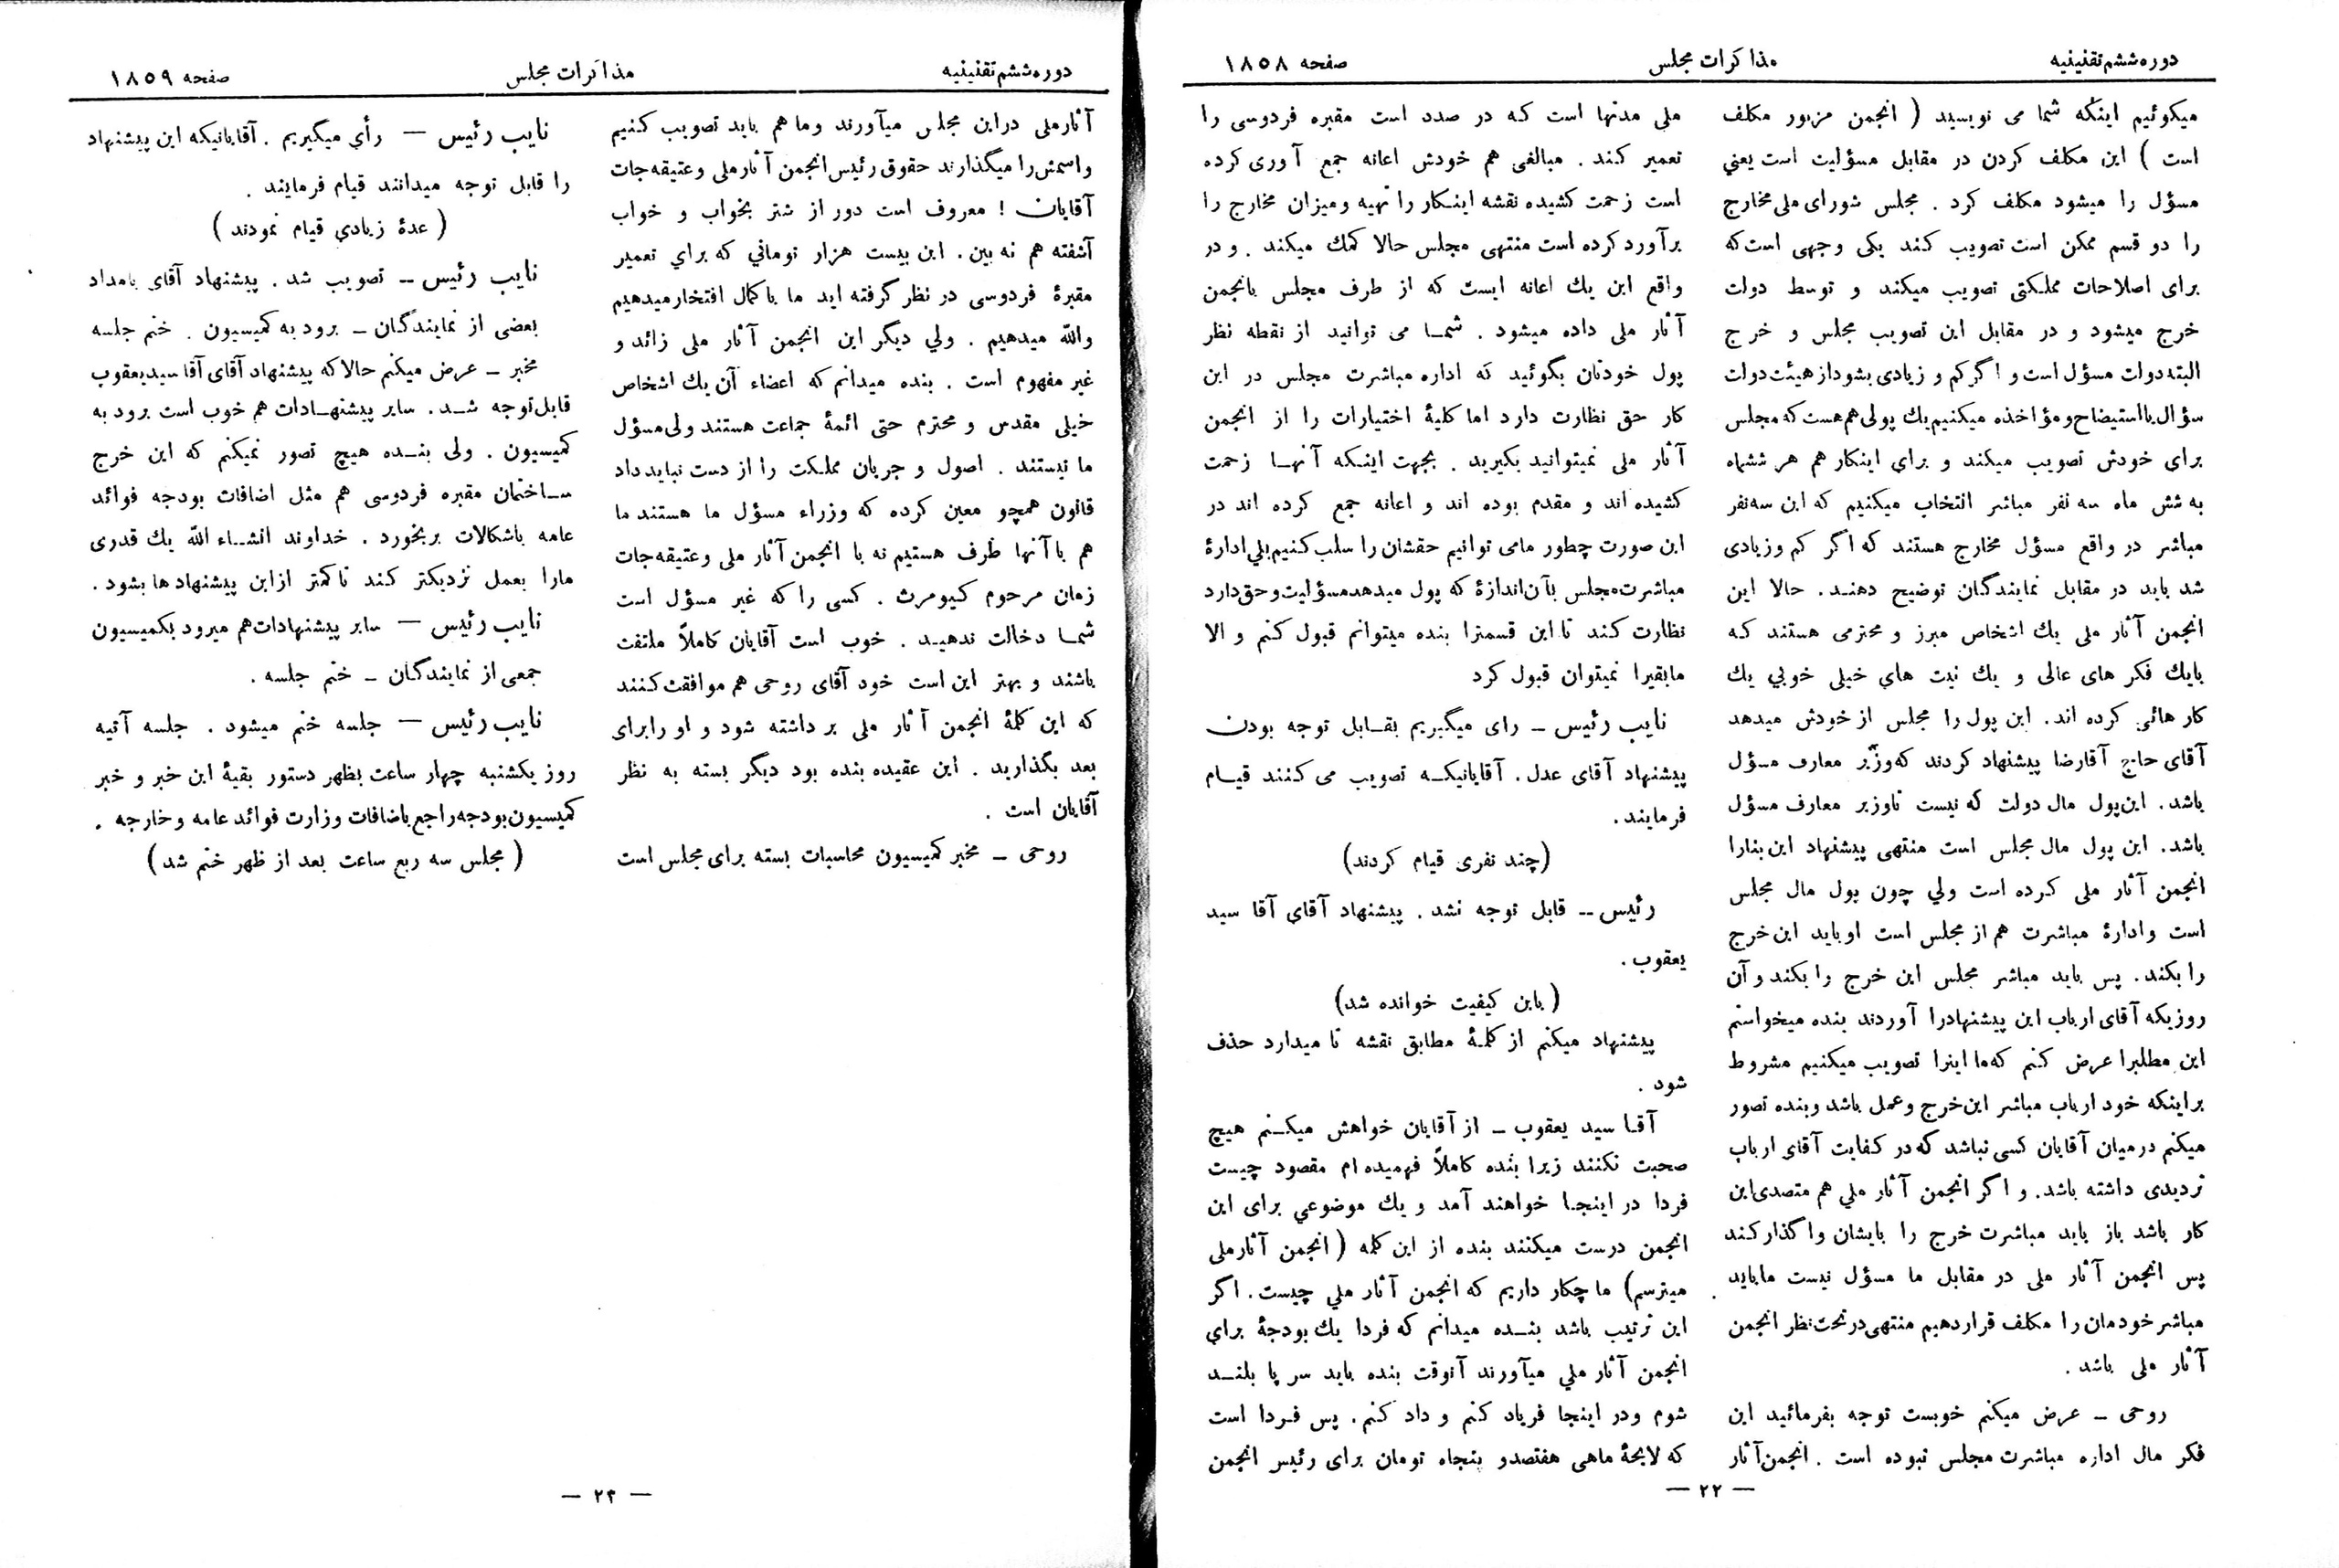 دوره ششم تقنینیه
مذاکرات مجلس
صفحه ۱۸۵۸
میکوئیم اینکه شما می نویسید ( انجمن مزبور مکلف
است ) این مکلف کردن در مقابل مسؤلیت است یعني
مسؤل را میشود مکلف کرد . مجلس شورای ملی مخارج
را دو قسم ممکن است تصویب کند یکی وجهی است که
برای اصلاحات مملکتی تصویب میکند و توسط دولت
خرج میشود و در مقابل این تصویب مجلس و خرج
البته دولت مسؤل است و اگر کم و زیادی بشود از هیئت دولت
سؤال یا استیضاح و مؤاخذه میکنیم یك پولی هم هست که مجلس
برای خودش تصویب میکند و برای اینکار هم هر ششماه
به شش ماه سه نفر مباشر انتخاب میکنیم که این سه نفر
مباشر در واقع مسؤل مخارج هستند که اگر کم و زیادی
شد باید در مقابل نمایندگان توضیح دهند . حالا این
انجمن آثار ملی یك اشخاص مبرز و محترمی هستند که
بایك فکر های عالی و یك نیت هاي خیلی خوبي یك
کار هائی کرده اند. این پول را مجلس از خودش میدهد
آقای حاج آقارضا پیشنهاد کردند که وزیر معارف مسؤل
باشد. این پول مال دولت که نیست تاوزیر معارف مسؤل
باشد. این پول مال مجلس است منتهی پیشنهاد این بنارا
انجمن آثار ملی کرده است ولي چون پول مال مجلس
است و ادارهٔ مباشرت هم از مجلس است او باید این خرج
را بکند. پس باید مباشر مجلس این خرج را بکند و آن
روزیکه آقای ارباب این پیشنهادرا آوردند بنده میخواستم
این مطلبرا عرض کنم که ما اینرا تصویب میکنیم مشروط
براینکه خود ارباب مباشر این خرج و عمل باشد و بنده تصور
میکنم در میان آقایان کسی نباشد که در کفایت آقای ارباب
تردیدی داشته باشد. و اگر انجمن آثار ملي هم متصدی این
کار باشد باز باید مباشرت خرج را بایشان واگذار کند
پس انجمن آثار ملی در مقابل ما مسؤل نیست ما باید
مباشر خودمان را مکلف قرار دهیم منتهی در تحت نظر انجمن
آثار ملی باشد .
روحی ــ عرض میکنم خوبست توجه بفرمائید این
فکر مال اداره مباشرت مجلس نبوده است . انجمن آثار
ملی مدتها است که در صدد است مقبره فردوسی را
تعمیر کند . مبالغی هم خودش اعانه جمع آوری کرده
است زحمت کشیده نقشه اینکار را تهیه و میزان مخارج را
برآورد کرده است منتهی مجلس حالا کمك میکند . و در
واقع این یك اعانه ایست که از طرف مجلس بانجمن
آثار ملی داده میشود . شما می توانید از نقطه نظر
پول خودتان بگوئید که اداره مباشرت مجلس در این
کار حق نظارت دارد اما کلیهٔ اختیارات را از انجمن
آثار ملی نمیتوانید بگیرید . بجهت اینکه آنها زحمت
کشیده اند و مقدم بوده اند و اعانه جمع کرده اند در
این صورت چطور ما می توانیم حقشان را سلب کنیم بلي ادارهٔ
مباشرت مجلس بآن اندازهٔ که پول میدهد مسؤلیت و حق دارد
نظارت کند تا این قسمترا بنده میتوانم قبول کنم و الا
مابقیرا نمیتوان قبول کرد
نایب رئیس ــ رای میگیریم بقابل توجه بودن
پیشنهاد آقای عدل . آقایانیکه تصویب می کنند قیام
فرمایند.
(چند نفری قیام کردند)
رئیس ــ قابل توجه نشد . پیشنهاد آقای آقا سید
یعقوب .
( باین کیفیت خوانده شد)
پیشنهاد میکنم از کلمهٔ مطابق نقشه تا میدارد حذف
شود .
آقا سید یعقوب ــ از آقایان خواهش میکنم هیچ
صحبت نکنند زیرا بنده کاملاً فهمیده ام مقصود چیست
فردا در اینجا خواهند آمد و یك موضوعي برای این
انجمن درست میکنند بنده از این کلمه ( انجمن آثار ملی
میترسم) ما چکار داریم که انجمن آثار ملي چیست . اگر
این ترتیب باشد بنده میدانم که فردا یك بودجهٔ براي
انجمن آثار ملي میآورند آنوقت بنده باید سر پا بلند
شوم و در اینجا فریاد کنم و داد کنم . پس فردا است
که لایحهٔ ماهی هفتصد و پنجاه تومان برای رئیس انجمن
— ۲۲ —
دوره ششم تقنینیه
مذاکرات مجلس
صفحه ۱۸۵۹
آثار ملی در این مجلس میآورند و ما هم باید تصویب کنیم
و اسمش را میگذارند حقوق رئیس انجمن آثار ملی و عتیقه جات
آقایان ! معروف است دور از شتر بخواب و خواب
آشفته هم نه بین . این بیست هزار توماني که براي تعمیر
مقبرهٔ فردوسی در نظر گرفته اید ما با کمال افتخار میدهیم
والله میدهیم . ولي دیگر این انجمن آثار ملی زائد و
غیر مفهوم است . بنده میدانم که اعضاء آن یك اشخاص
خیلی مقدس و محترم حتی ائمهٔ جماعت هستند ولی مسؤل
ما نیستند . اصول و جریان مملکت را از دست نباید داد
قانون همچو معین کرده که وزراء مسؤل ما هستند ما
هم با آنها طرف هستیم نه با انجمن آثار ملی و عتیقه جات
زمان مرحوم کیومرث . کسی را که غیر مسؤل است
شما دخالت ندهید . خوب است آقایان کاملاً ملتفت
باشند و بهتر این است خود آقای روحی هم موافقت کنند
که این کلمهٔ انجمن آثار ملی بر داشته شود و او را برای
بعد بگذارید . این عقیده بنده بود دیگر بسته به نظر
آقایان است .
روحی ــ مخبر کمیسیون محاسبات بسته برای مجلس است
نایب رئیس — رأی میگیریم . آقایانیکه این پیشنهاد
را قابل توجه میدانند قیام فرمایند .
( عدهٔ زیادي قیام نمودند )
نایب رئیس ــ تصویب شد . پیشنهاد آقای بامداد
بعضی از نمایندگان ــ برود به کمیسیون . ختم جلسه
مخبر ــ عرض میکنم حالا که پیشنهاد آقای آقا سید یعقوب
قابل توجه شد . سایر پیشنهادات هم خوب است برود به
کمیسیون . ولی بنده هیچ تصور نمیکنم که این خرج
ساختمان مقبره فردوسی هم مثل اضافات بودجه فوائد
عامه باشکالات بربخورد . خداوند انشاءالله یك قدری
مارا بعمل نزدیکتر کند تا کمتر از این پیشنهادها بشود .
نایب رئیس — سایر پیشنهادات هم میرود بکمیسیون
جمعی از نمایندگان ــ ختم جلسه .
نایب رئیس — جلسه ختم میشود . جلسه آتیه
روز یکشنبه چهار ساعت بظهر دستور بقیهٔ این خبر و خبر
کمیسیون بودجه راجع باضافات وزارت فوائد عامه و خارجه .
( مجلس سه ربع ساعت بعد از ظهر ختم شد )
— ۲۳ —